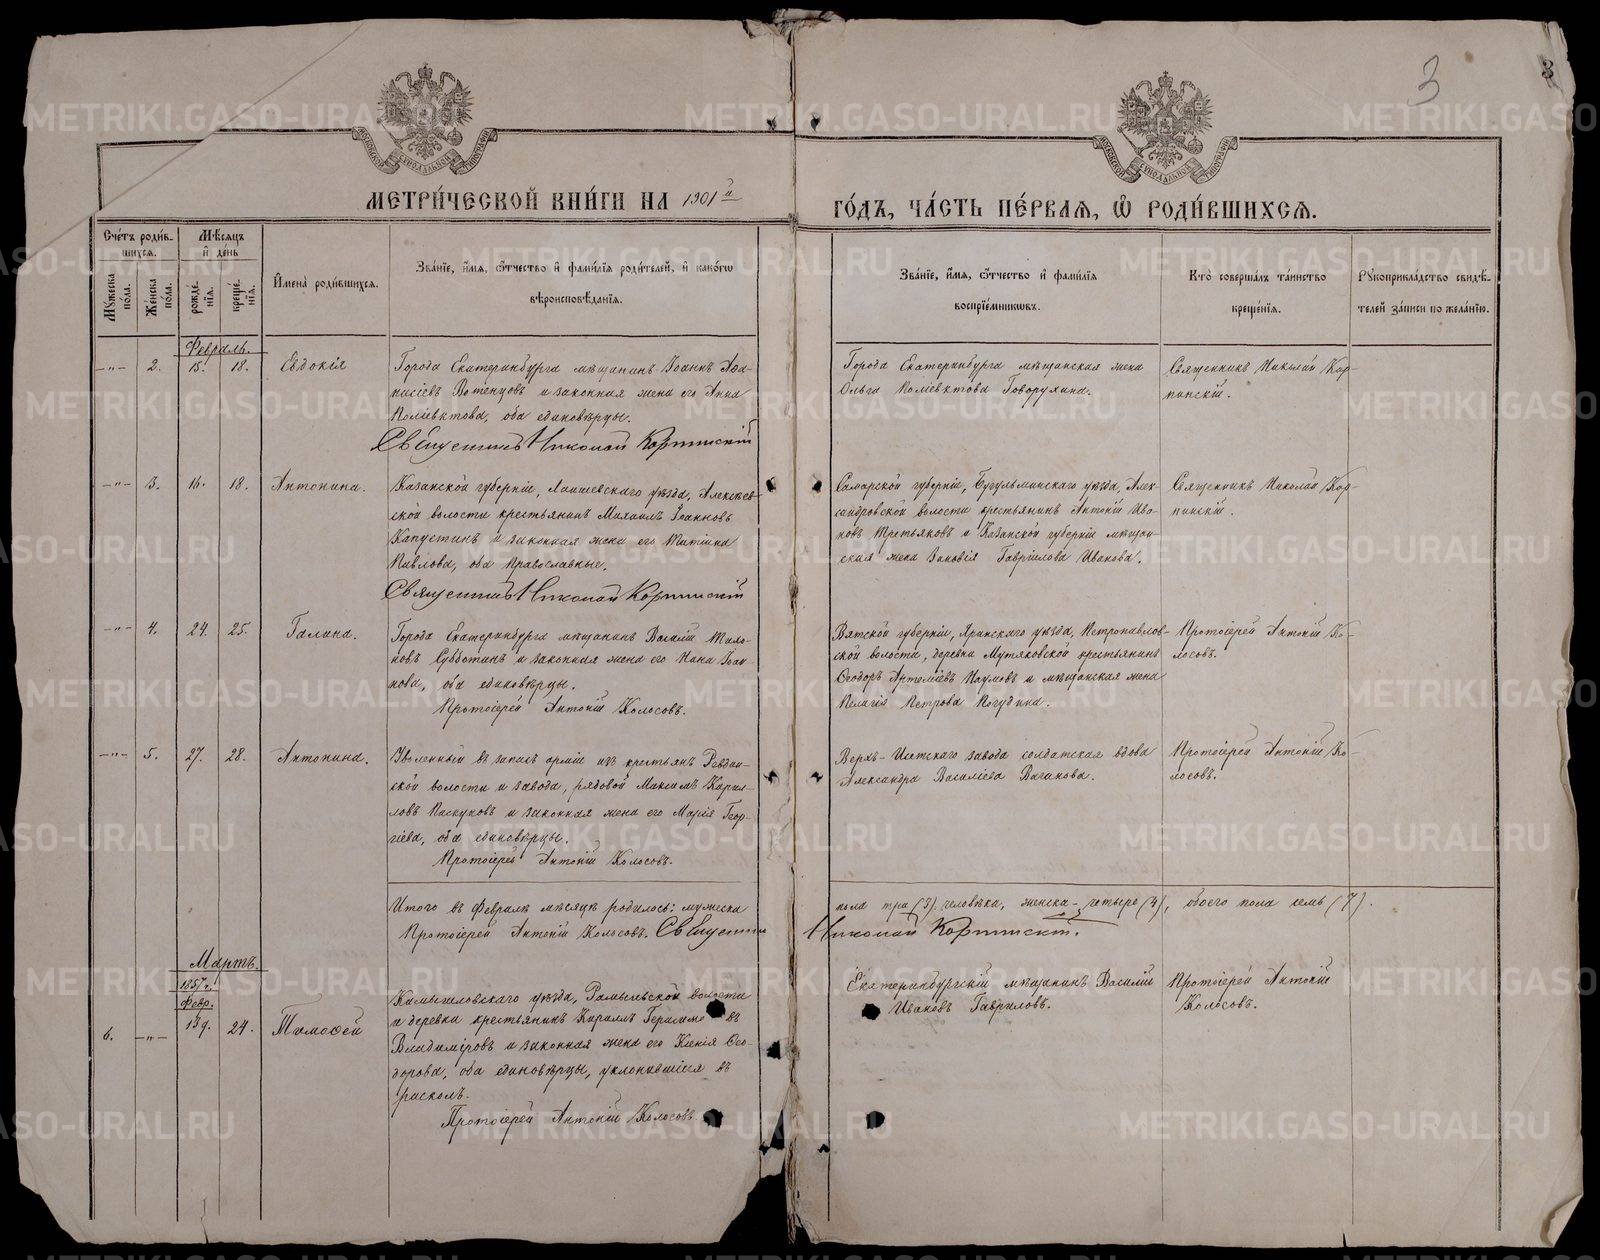 3
3
МОСКОВСКОЙ СѴНОДАЛЬНОЙ ТИПОГРАФІИ
МОСКОВСКОЙ СѴНОДАЛЬНОЙ ТИПОГРАФІИ
МЕТРИ́ЧЕСКОЙ КНИ́ГИ НА 1901й ГО́ДЪ, ЧА́СТЬ ПЕ́РВАЯ, Ѡ РОДИ́ВШИХСЯ.
Сче́тъ роди́вшихся.
Мꙋжеска по́ла.
Же́нска по́ла.
Мѣ́сяцъ и҆ де́нь
рожде́нїя.
креще́нїя.
И҆мена̀ роди́вшихся.
Зва́нїе, и҆́мя, ѻ҆́тчество и҆ фами́лїя роди́телей, и҆ како́гѡ
вѣроисповѣ́данїя.
Зва́нїе, и҆́мя, ѻ҆́тчество и҆ фами́лїя
воспрїе́мниковъ.
Кто̀ соверша́лъ таинство
креще́нїя.
Рꙋкоприкла́дство свидѣ́телей за́писи по жела́нїю.
Февраль.
—„— 2. 15. 18. Евдокія
Города Екатеринбурга мѣщанинъ Іоаннъ Аѳа-
насіевъ Вотенцовъ и законная жена его Анна
Поліевктова, оба единовѣрцы.
Священникъ Николай Корпинскій
Города Екатеринбурга мѣщанская жена
Ольга Поліевктова Говорухина.
Священникъ Николай Кор-
пинскій.
—„— 3. 16. 18. Антонина.
Казанской губерніи, Лаишевскаго уѣзда, Алексѣев-
ской волости крестьянинъ Михаилъ Іоанновъ
Капустинъ и законная жена его Татіана
Павлова, оба православные.
Священникъ Николай Корпинскій
Самарской губерніи, Бугульминскаго уѣзда, Алек-
сандровской волости крестьянинъ Антоній Ива-
новъ Третьяковъ и Казанской губерніи мѣщан-
ская жена Зиновія Гавріилова Иванова.
Священникъ Николай Кор-
пинскій.
—„— 4. 24. 25. Галина.
Города Екатеринбурга мѣщанинъ Василій
Субботинъ и законная жена его Анна Іоан-
нова, оба единовѣрцы.
Протоіерей Антоній Колосовъ.
Вятской губерніи, Яранскаго уѣзда, Петропавлов-
ской волости, деревни Мутяковской крестьянинъ
Ѳеодоръ Артеміевъ Наумовъ и мѣщанская жена
Пелагія Петрова Погудина.
Протоіерей Антоній Ко-
лосовъ.
—„— 5. 27. 28. Антонина.
Уволенный въ запасъ арміи изъ крестьянъ Ревдин-
ской волости и завода, рядовой Максимъ Карил-
ловъ Паскуновъ и законная жена его Марія Геор-
гіева, оба единовѣрцы.
Протоіерей Антоній Колосовъ.
Верхъ-Исетскаго завода солдатская вдова
Александра Василіева Ваганова.
Протоіерей Антоній Ко-
лосовъ.
Итого въ Февралѣ мѣсяцѣ родилось: мужеска пола три (3) человѣка, женска - четыре (4), обоего пола семь (7).
Протоіерей Антоній Колосовъ. Священникъ Николай Корпинскій.
Мартъ.
1857 г.
Февр.
6. —„— 19. 24. Тимоѳей
Камышловскаго уѣзда, Рамыльской волости
и деревни крестьянинъ Кириллъ Герасимовъ
Владиміровъ и законная жена его Ксенія Ѳео-
дорова, оба единовѣрцы, уклонившіеся въ
расколъ.
Протоіерей Антоній Колосовъ.
Екатеринбургскій мѣщанинъ Василій
Ивановъ Гавриловъ.
Протоіерей Антоній
Колосовъ.
METRIKI.GASO-URAL.RU